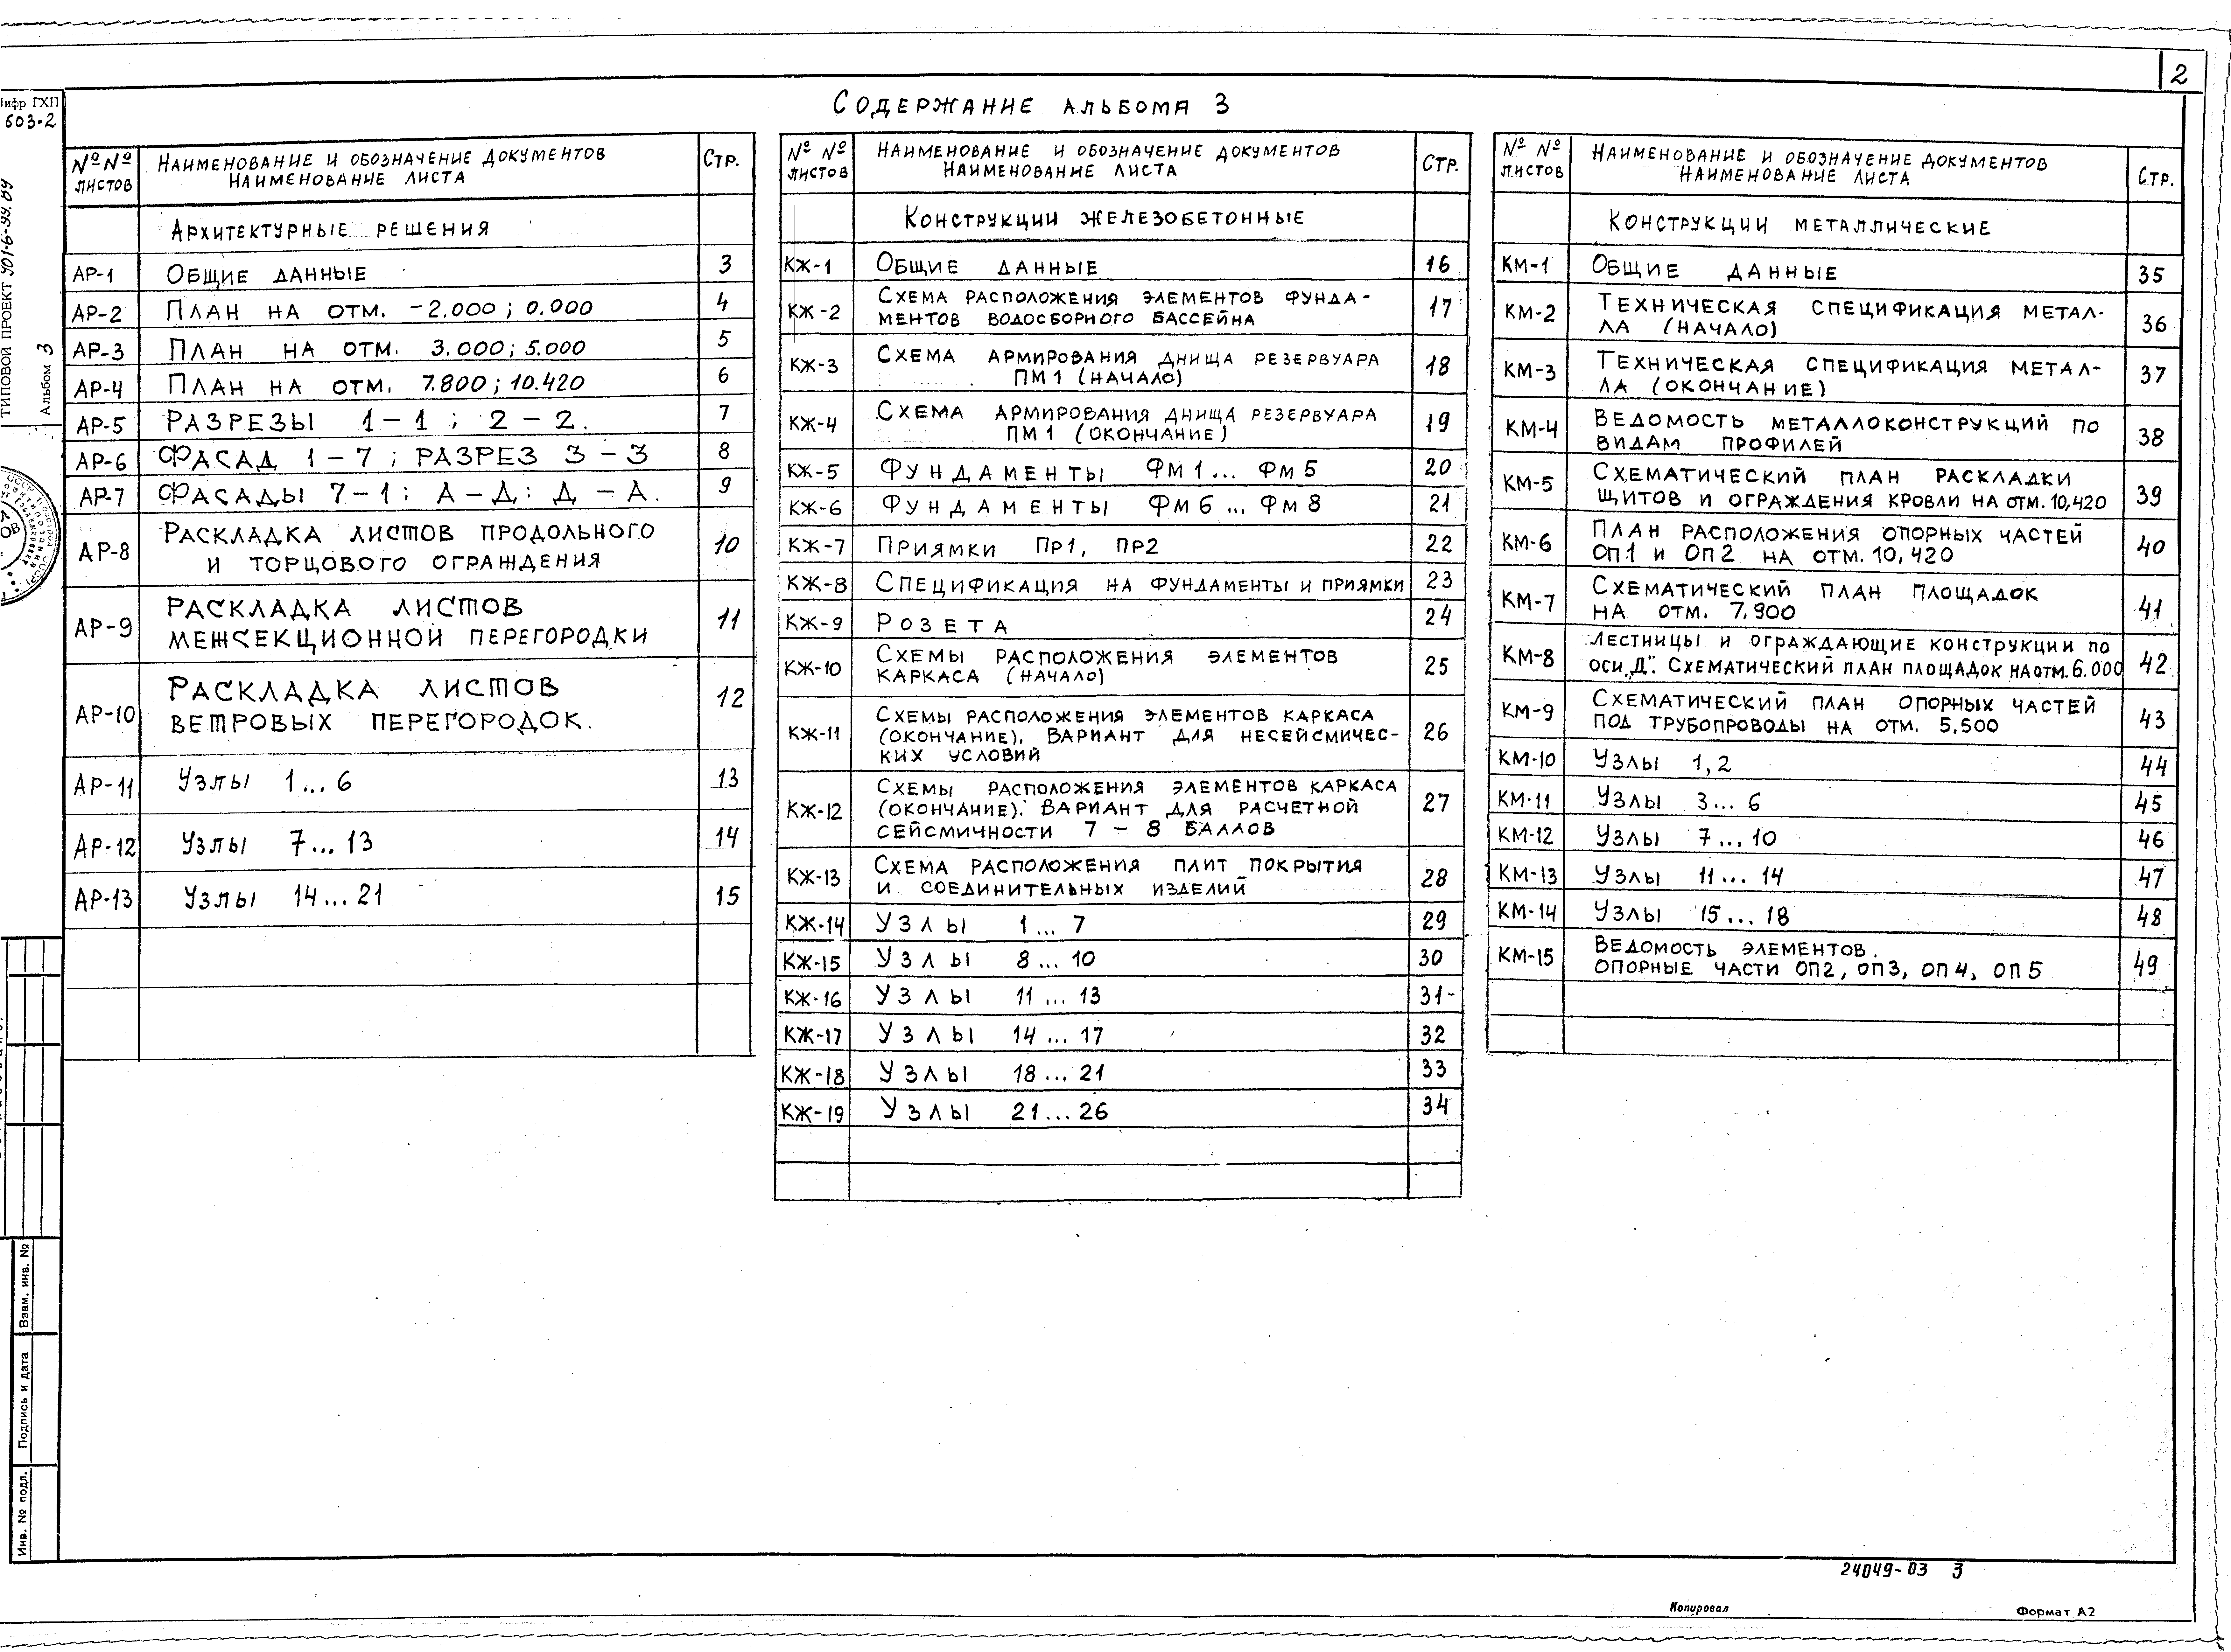 2
Содержание альбома 3
Шифр ГХП
603-2
ТИПОВОЙ ПРОЕКТ
Альбом 3
№ № листов
Наименование и обозначение документов
Наименование листа
Стр.
Архитектурные решения
АР-1 Общие данные 3
АР-2 План на отм. -2.000; 0.000 4
АР-3 План на отм. 3.000; 5.000 5
АР-4 План на отм. 7.800; 10.420 6
АР-5 Разрезы 1-1; 2-2. 7
АР-6 Фасад 1-7; разрез 3-3 8
АР-7 Фасады 7-1; А-Д; Д-А. 9
АР-8 Раскладка листов продольного
и торцового ограждения 10
АР-9 Раскладка листов
межсекционной перегородки 11
АР-10 Раскладка листов
ветровых перегородок. 12
АР-11 Узлы 1...6 13
АР-12 Узлы 7...13 14
АР-13 Узлы 14...21 15
№ № листов
Наименование и обозначение документов
Наименование листа
Стр.
Конструкции железобетонные
КЖ-1 Общие данные 16
КЖ-2 Схема расположения элементов фунда-
ментов водосборного бассейна 17
КЖ-3 Схема армирования днища резервуара
ПМ1 (начало) 18
КЖ-4 Схема армирования днища резервуара
ПМ1 (окончание) 19
КЖ-5 Фундаменты Фм1... Фм5 20
КЖ-6 Фундаменты Фм6... Фм8 21
КЖ-7 Приямки Пр1, Пр2 22
КЖ-8 Спецификация на фундаменты и приямки 23
КЖ-9 Розета 24
КЖ-10 Схемы расположения элементов
каркаса (начало) 25
КЖ-11 Схемы расположения элементов каркаса
(окончание). Вариант для несейсмичес-
ких условий 26
КЖ-12 Схемы расположения элементов каркаса
(окончание). Вариант для расчетной
сейсмичности 7 - 8 баллов 27
КЖ-13 Схема расположения плит покрытия
и соединительных изделий 28
КЖ-14 Узлы 1... 7 29
КЖ-15 Узлы 8... 10 30
КЖ-16 Узлы 11... 13 31
КЖ-17 Узлы 14... 17 32
КЖ-18 Узлы 18... 21 33
КЖ-19 Узлы 21... 26 34
№ № листов
Наименование и обозначение документов
Наименование листа
Стр.
Конструкции металлические
КМ-1 Общие данные 35
КМ-2 Техническая спецификация метал-
ла (начало) 36
КМ-3 Техническая спецификация метал-
ла (окончание) 37
КМ-4 Ведомость металлоконструкций по
видам профилей 38
КМ-5 Схематический план раскладки
щитов и ограждения кровли на отм. 10,420 39
КМ-6 План расположения опорных частей
ОП1 и ОП2 на отм. 10,420 40
КМ-7 Схематический план площадок
на отм. 7,900 41
КМ-8 Лестницы и ограждающие конструкции по
оси „Д". Схематический план площадок на отм. 6.000 42
КМ-9 Схематический план опорных частей
под трубопроводы на отм. 5,500 43
КМ-10 Узлы 1, 2 44
КМ-11 Узлы 3... 6 45
КМ-12 Узлы 7... 10 46
КМ-13 Узлы 11... 14 47
КМ-14 Узлы 15... 18 48
КМ-15 Ведомость элементов.
Опорные части ОП2, ОП3, ОП4, ОП5 49
Взам. инв. №
Подпись и дата
Инв. № подл.
24049-03 3
Копировал
Формат А2